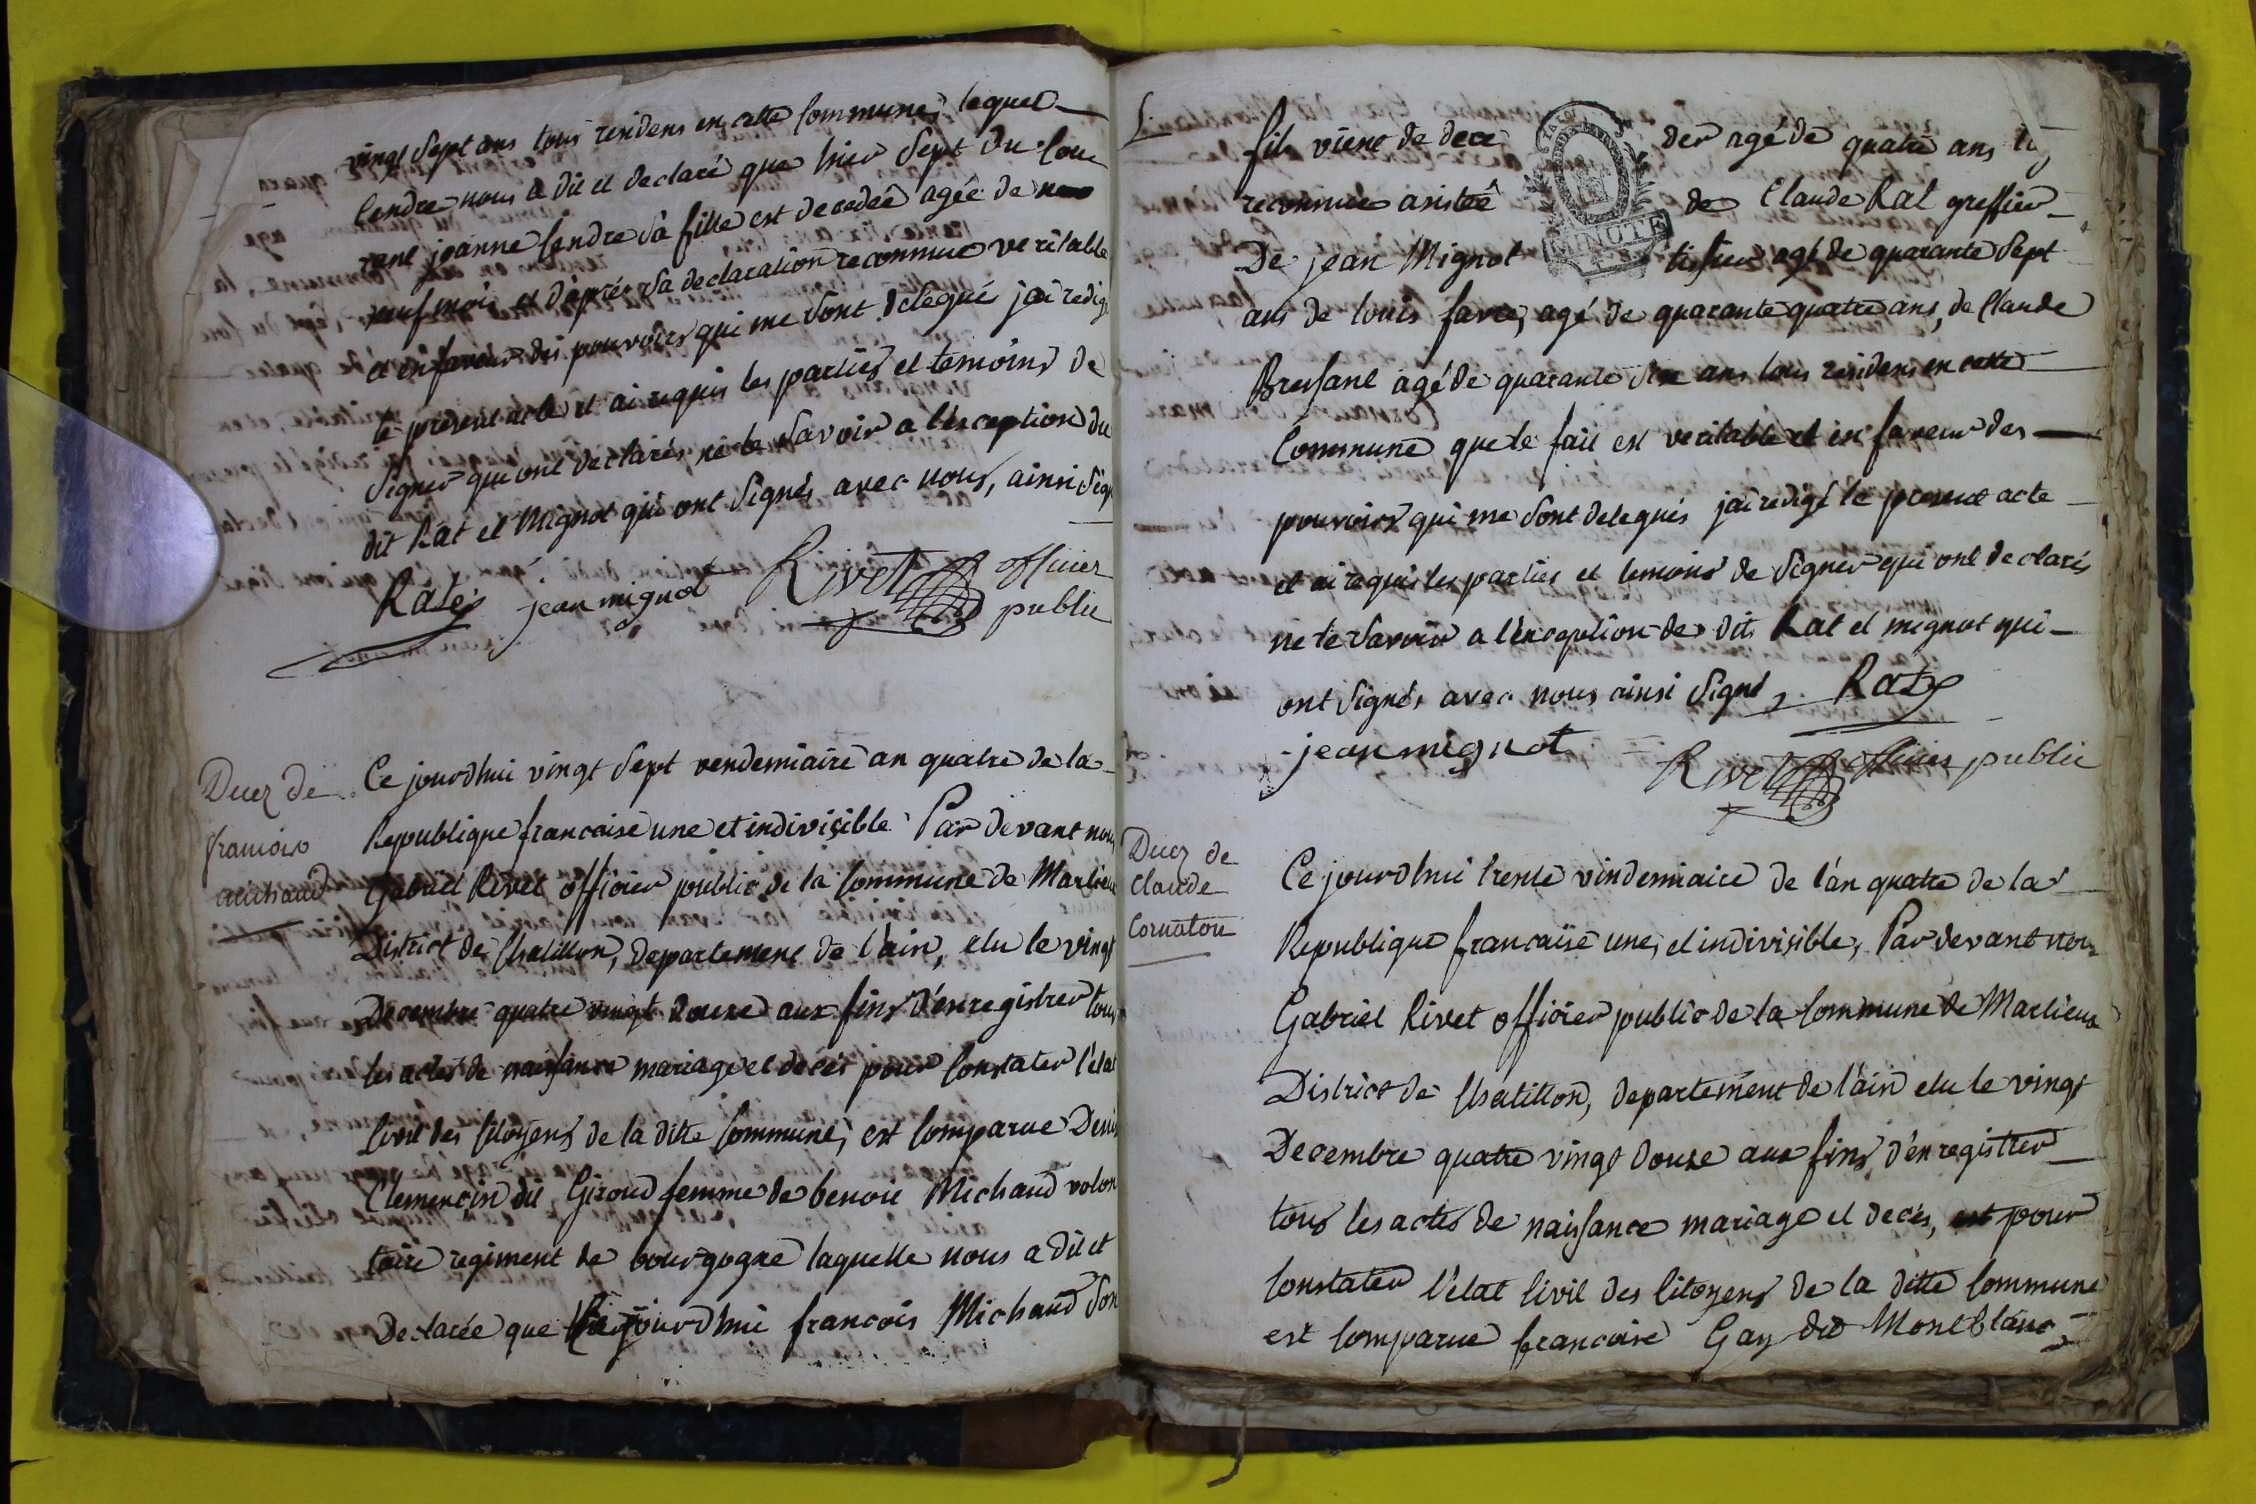 vingt sept ans tous residens en cette Commune, lequel
Cendre nous a dit et declaré que hier sept du Cou
rant jeanne Cendre sa fille est decedeé agée de
neuf mois et d'après sa declaration reconnue veritable
et en faveur des pouvoirs qui me sont delegués jai redigé
le present acte et ai requis les parties et temoins de
signer qui ont declarés ne le savoir a l'exception du
dit Rat et Mignot qui ont signés avec nous, ainsi signé
Rat jean mignot Rivet officier
public
Decez de
francois
michaud
Ce jourdhui vingt sept vendemiaire an quatre de la
Republique francaise une et indivisible Par devant nous
Gabriel Rivet officier public de la Commune de Marlieux
District de Chatillon, departement de l'ain, elu le vingt
Decembre quatre vingt douze aux fins d'enregistrer tous
les actes de naissance mariage et decès pour Constater l'etat
Civil des Citoyens de la ditte Commune, est Comparue Denise
Clemençin dit Giroud femme de benoit Michaud volon
taire regiment de bourgogne laquelle nous a dit et
Declarée que jourdhui francois Michaud son
fils vient de dece der agé de quatre ans
reconnue de Claude Rat greffier
De jean Mignot tissier agé de quarante sept
ans de louis favre, agé de quarante quatre ans, de Claude
Bressant agé de quarante six ans tous residens en cette
Commune que le fait est veritable et en faveur des
pouvoirs qui me sont delegués jai redigé le present acte
et ai requis les parties et temoins de signer qui ont declarés
ne le savoir a l'exception des dits Rat et mignot qui
ont signés avec nous ainsi signé, Rat
jean mignot
Rivet officier public
Decez de
Claude
Cornaton
Ce jourdhui trente vindemiaire de l'an quatre de la
Republique francaise une, et indivisible, Par devant nous
Gabriel Rivet officier public de la Commune de Marlieux
District de Chatillon, departement de l'ain elu le vingt
Decembre quatre vingt douze aux fins d'enregistrer
tous les actes de naissance mariage et decès, pour
Constater l'etat Civil des Citoyens de la ditte Commune
est Comparue francoise Gay dit Montblanc,